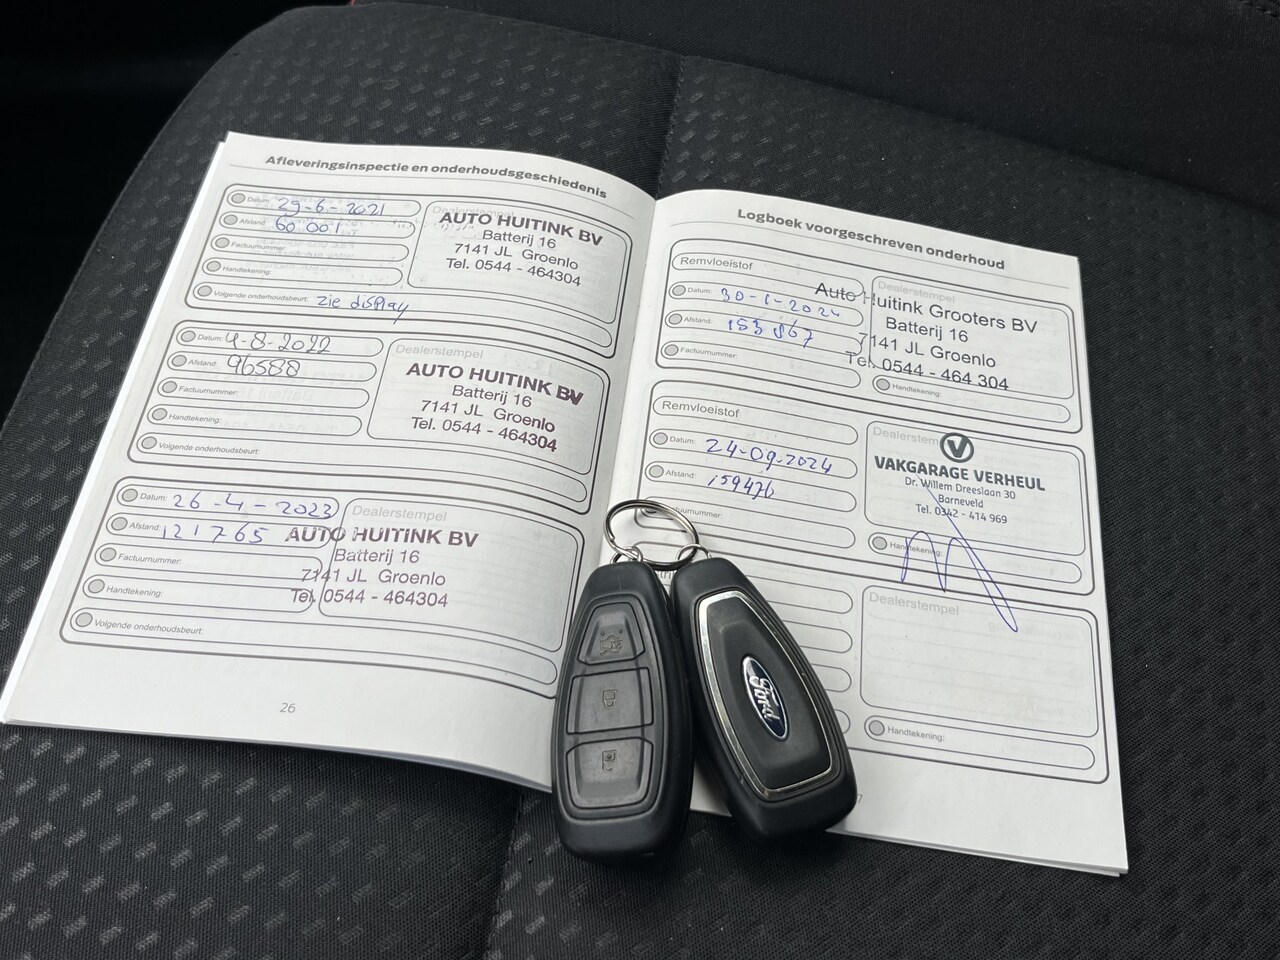 Afleveringsinspectie en onderhoudsgeschiedenis
Datum: 29-6-2021
Afstand: 60 001
Factuurnummer:
Handtekening:
Volgende onderhoudsbeurt: zie display
Dealerstempel
AUTO HUITINK BV
Batterij 16
7141 JL Groenlo
Tel. 0544 - 464304
Datum: 4-8-2022
Afstand: 96588
Factuurnummer:
Handtekening:
Volgende onderhoudsbeurt:
Dealerstempel
AUTO HUITINK BV
Batterij 16
7141 JL Groenlo
Tel. 0544 - 464304
Datum: 26-4-2023
Afstand: 121765
Factuurnummer:
Handtekening:
Volgende onderhoudsbeurt:
Dealerstempel
AUTO HUITINK BV
Batterij 16
7141 JL Groenlo
Tel. 0544 - 464304
26
Logboek voorgeschreven onderhoud
Remvloeistof
Datum: 30-1-2024
Afstand: 153 867
Factuurnummer:
Dealerstempel
Auto Huitink Grooters BV
Batterij 16
7141 JL Groenlo
Tel. 0544 - 464 304
Handtekening:
Remvloeistof
Datum: 24-09-2024
Afstand: 159476
Dealerstem
V
VAKGARAGE VERHEUL
Dr. Willem Dreeslaan 30
Barneveld
Tel. 0342 - 414 969
Handtekening:
Dealerstempel
Handtekening:
Ford